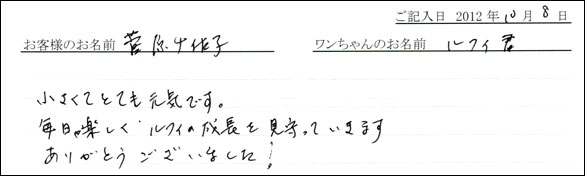 ご記入日 2012年10月8日
お客様のお名前 菅原 佐子 ワンちゃんのお名前 ルフィ君
小さくてとても元気です。
毎日楽しくルフィの成長を見守っています
ありがとうございました!